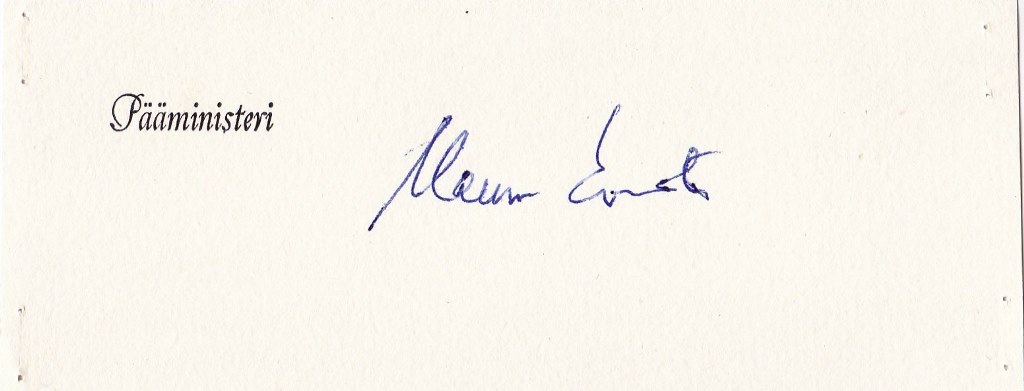 Pääministeri
Mauno Koivisto